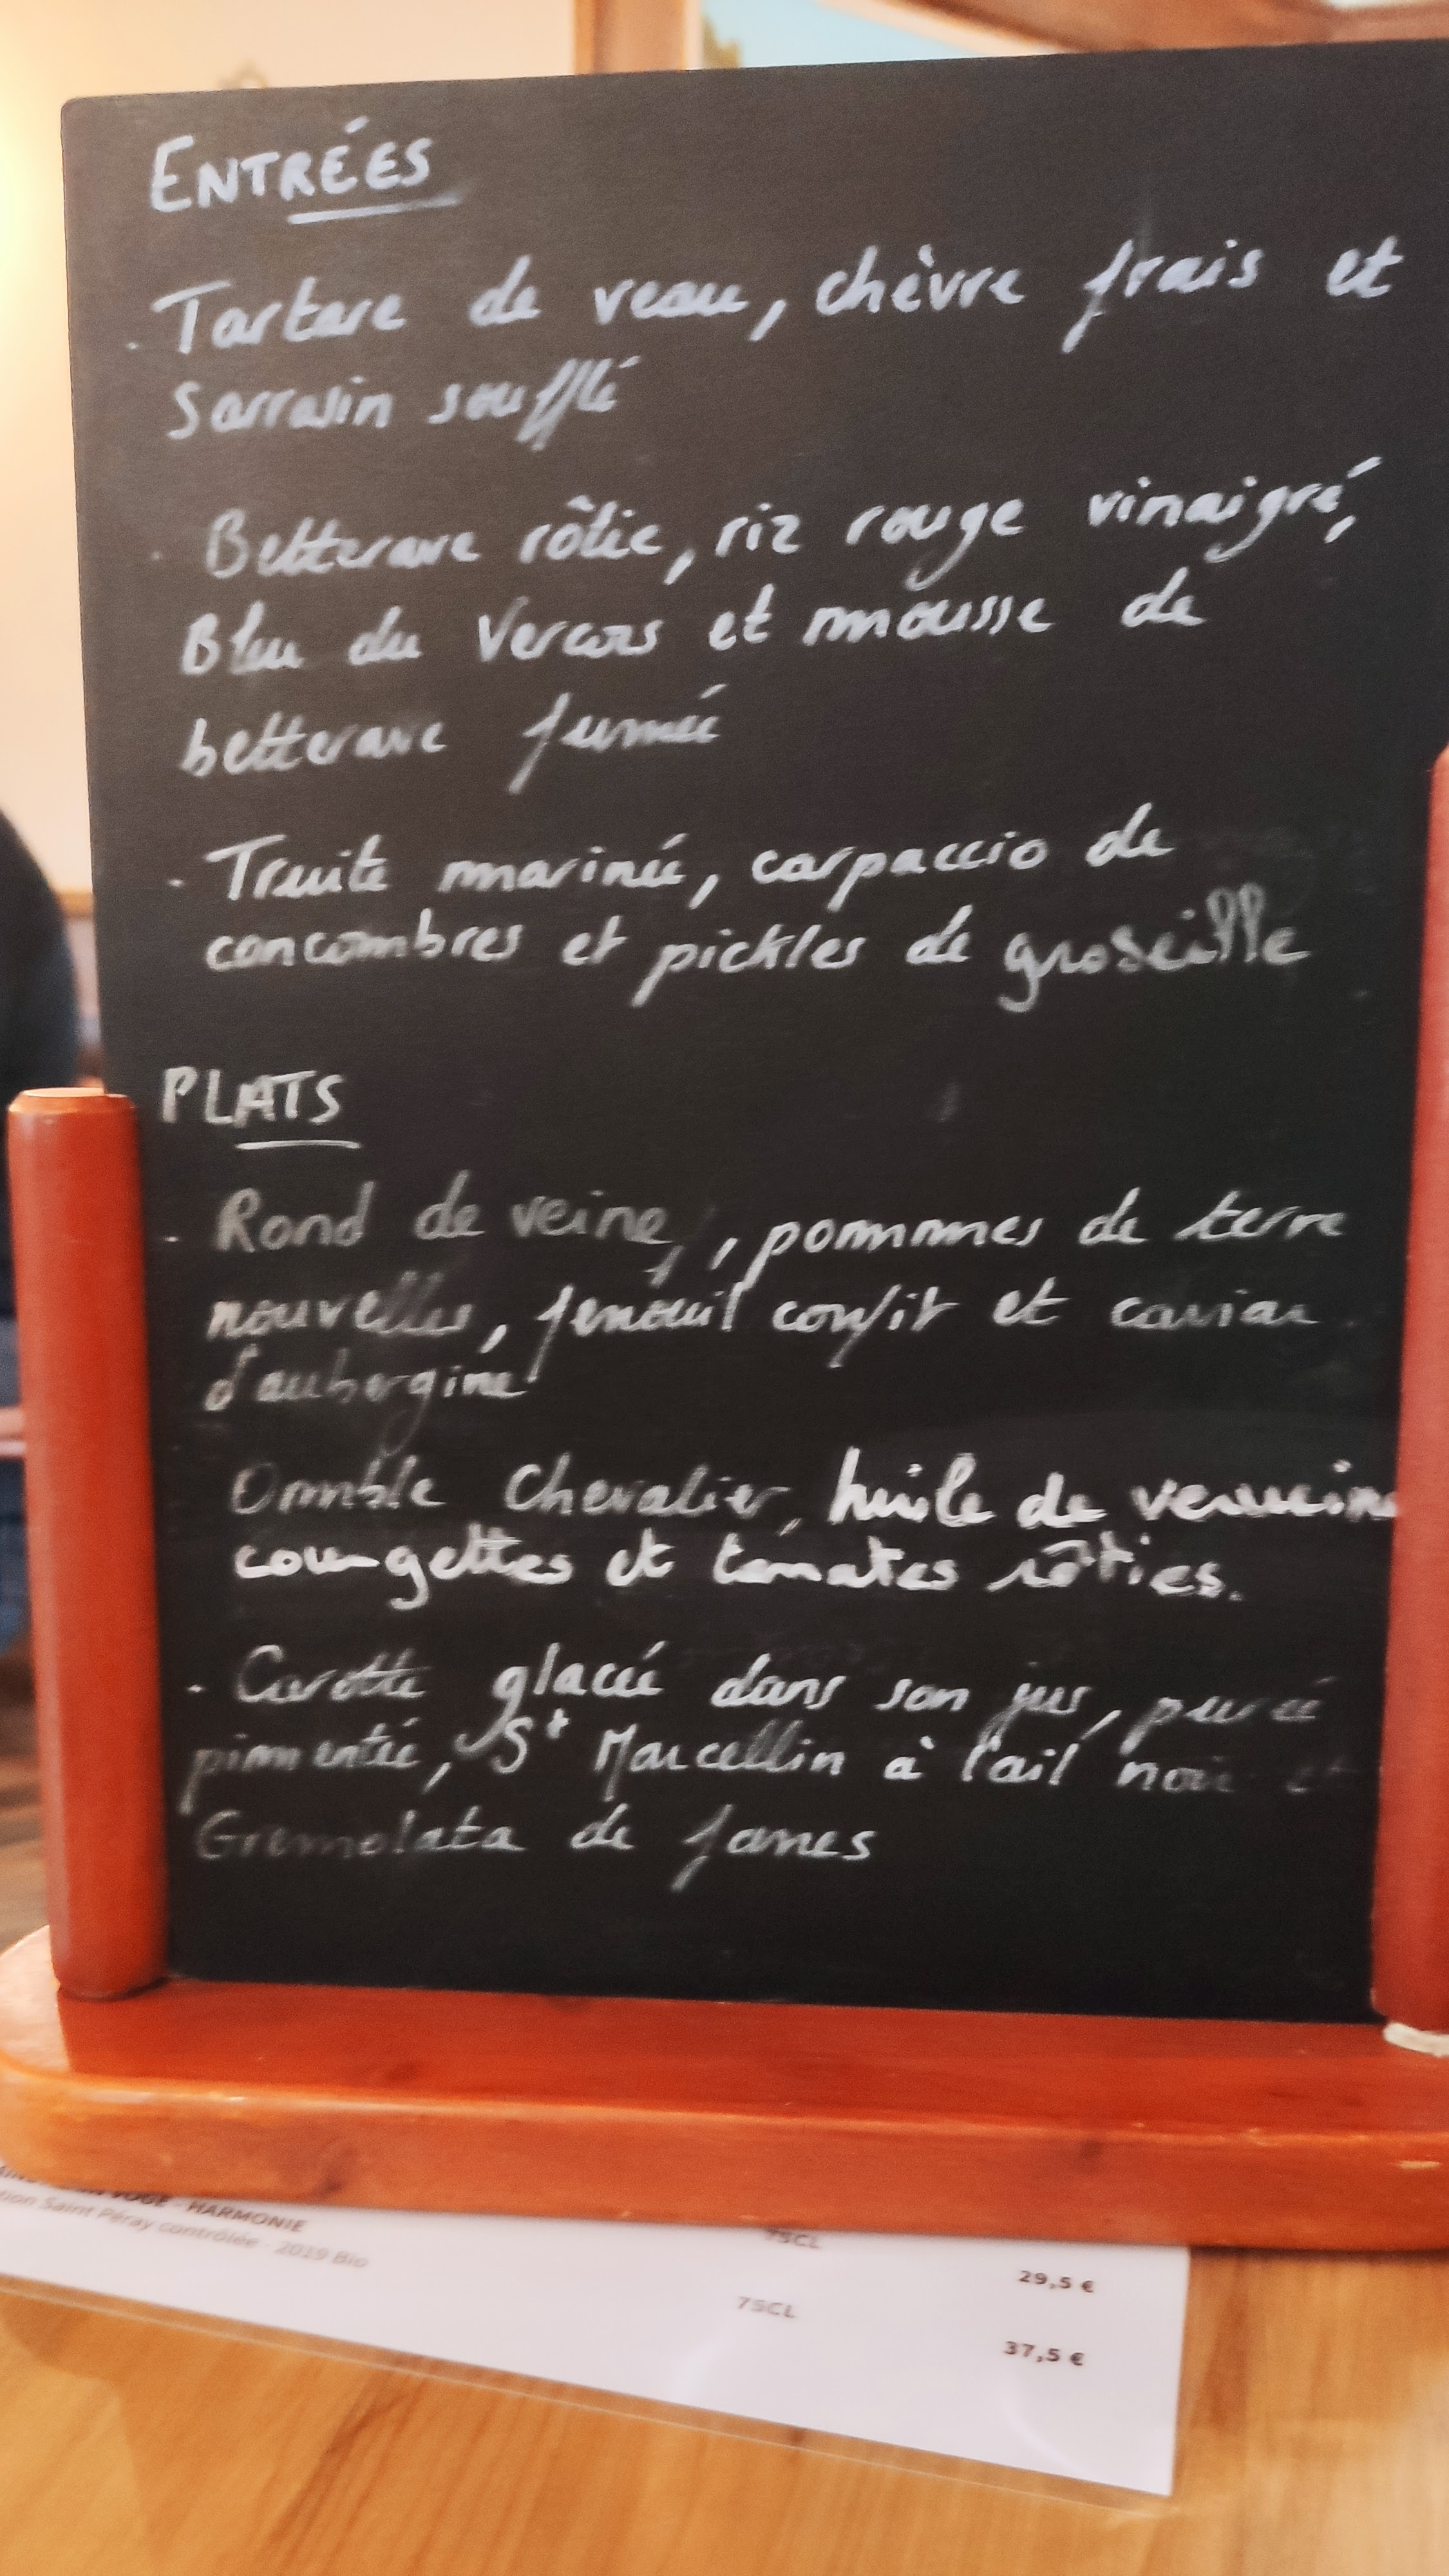 ENTRÉES
· Tartare de veau, chèvre frais et
Sarrasin soufflé
· Betterave rôtie, riz rouge vinaigré,
Bleu du Vercors et mousse de
betterave fumée
· Truite marinée, carpaccio de
concombres et pickles de groseille
PLATS
· Rond de veine, pommes de terre
nouvelles, fenouil confit et caviar
d'aubergine
Omble Chevalier, huile de verveine
courgettes et tomates rôties.
· Carotte glacée dans son jus, purée
pimentée, St Marcellin à l'ail noir et
Gremolata de fanes
HARMONIE
Saint Péray contrôlée - 2019 Bio
75CL
29,5 €
75CL
37,5 €